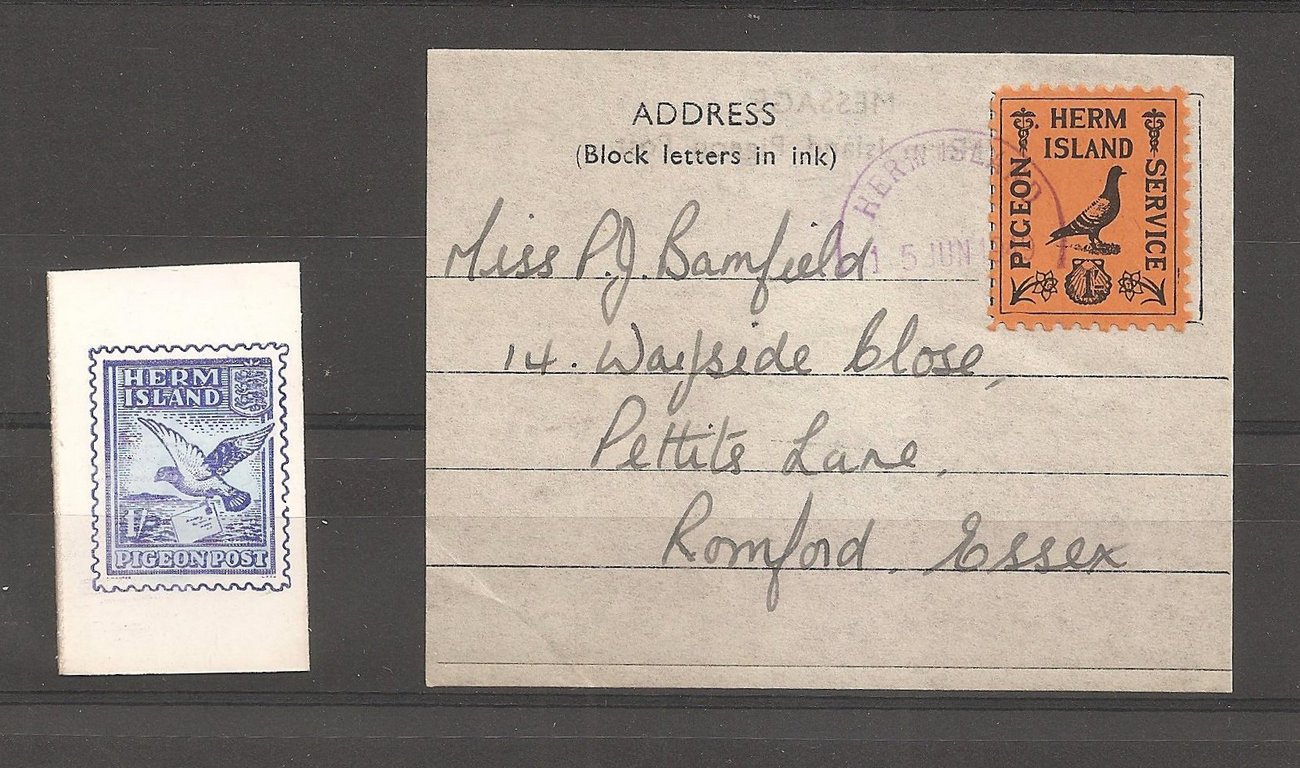 HERM
ISLAND
1/-
PIGEON POST
ADDRESS
(Block letters in ink)
HERM ISLAND
15 JUN
HERM
ISLAND
PIGEON
SERVICE
1/-
Miss P.J. Bamfield
14. Wayside Close,
Pettits Lane,
Romford. Essex
MESSAGE